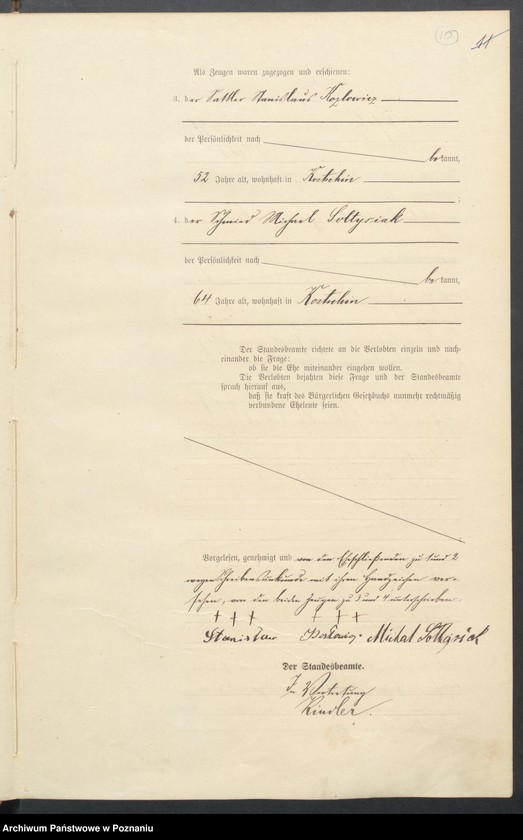 (10) 11
Als Zeugen waren zugezogen und erschienen:
3. der Sattler Stanislaus
der Persönlichkeit nach
bekannt,
52 Jahre alt, wohnhaft in Kostschin
4. der Schmied Michael Soltysiak
der Persönlichkeit nach
bekannt,
64 Jahre alt, wohnhaft in Kostschin
Der Standesbeamte richtete an die Verlobten einzeln und nach-
einander die Frage:
ob sie die Ehe miteinander eingehen wollen.
Die Verlobten bejahten diese Frage und der Standesbeamte
sprach hierauf aus,
daß sie kraft des Bürgerlichen Gesetzbuchs nunmehr rechtmäßig
verbundene Eheleute seien.
Vorgelesen, genehmigt und von den Eheschließenden zu 1 und 2
wegen Schreibensunkunde mit ihrem Handzeichen ver-
sehen, von den beiden Zeugen zu 3 und 4 unterschrieben.
+++ +++
Stanisław Michał Sołtysiak
Der Standesbeamte.
In Vertretung
Kindler.
Archiwum Państwowe w Poznaniu